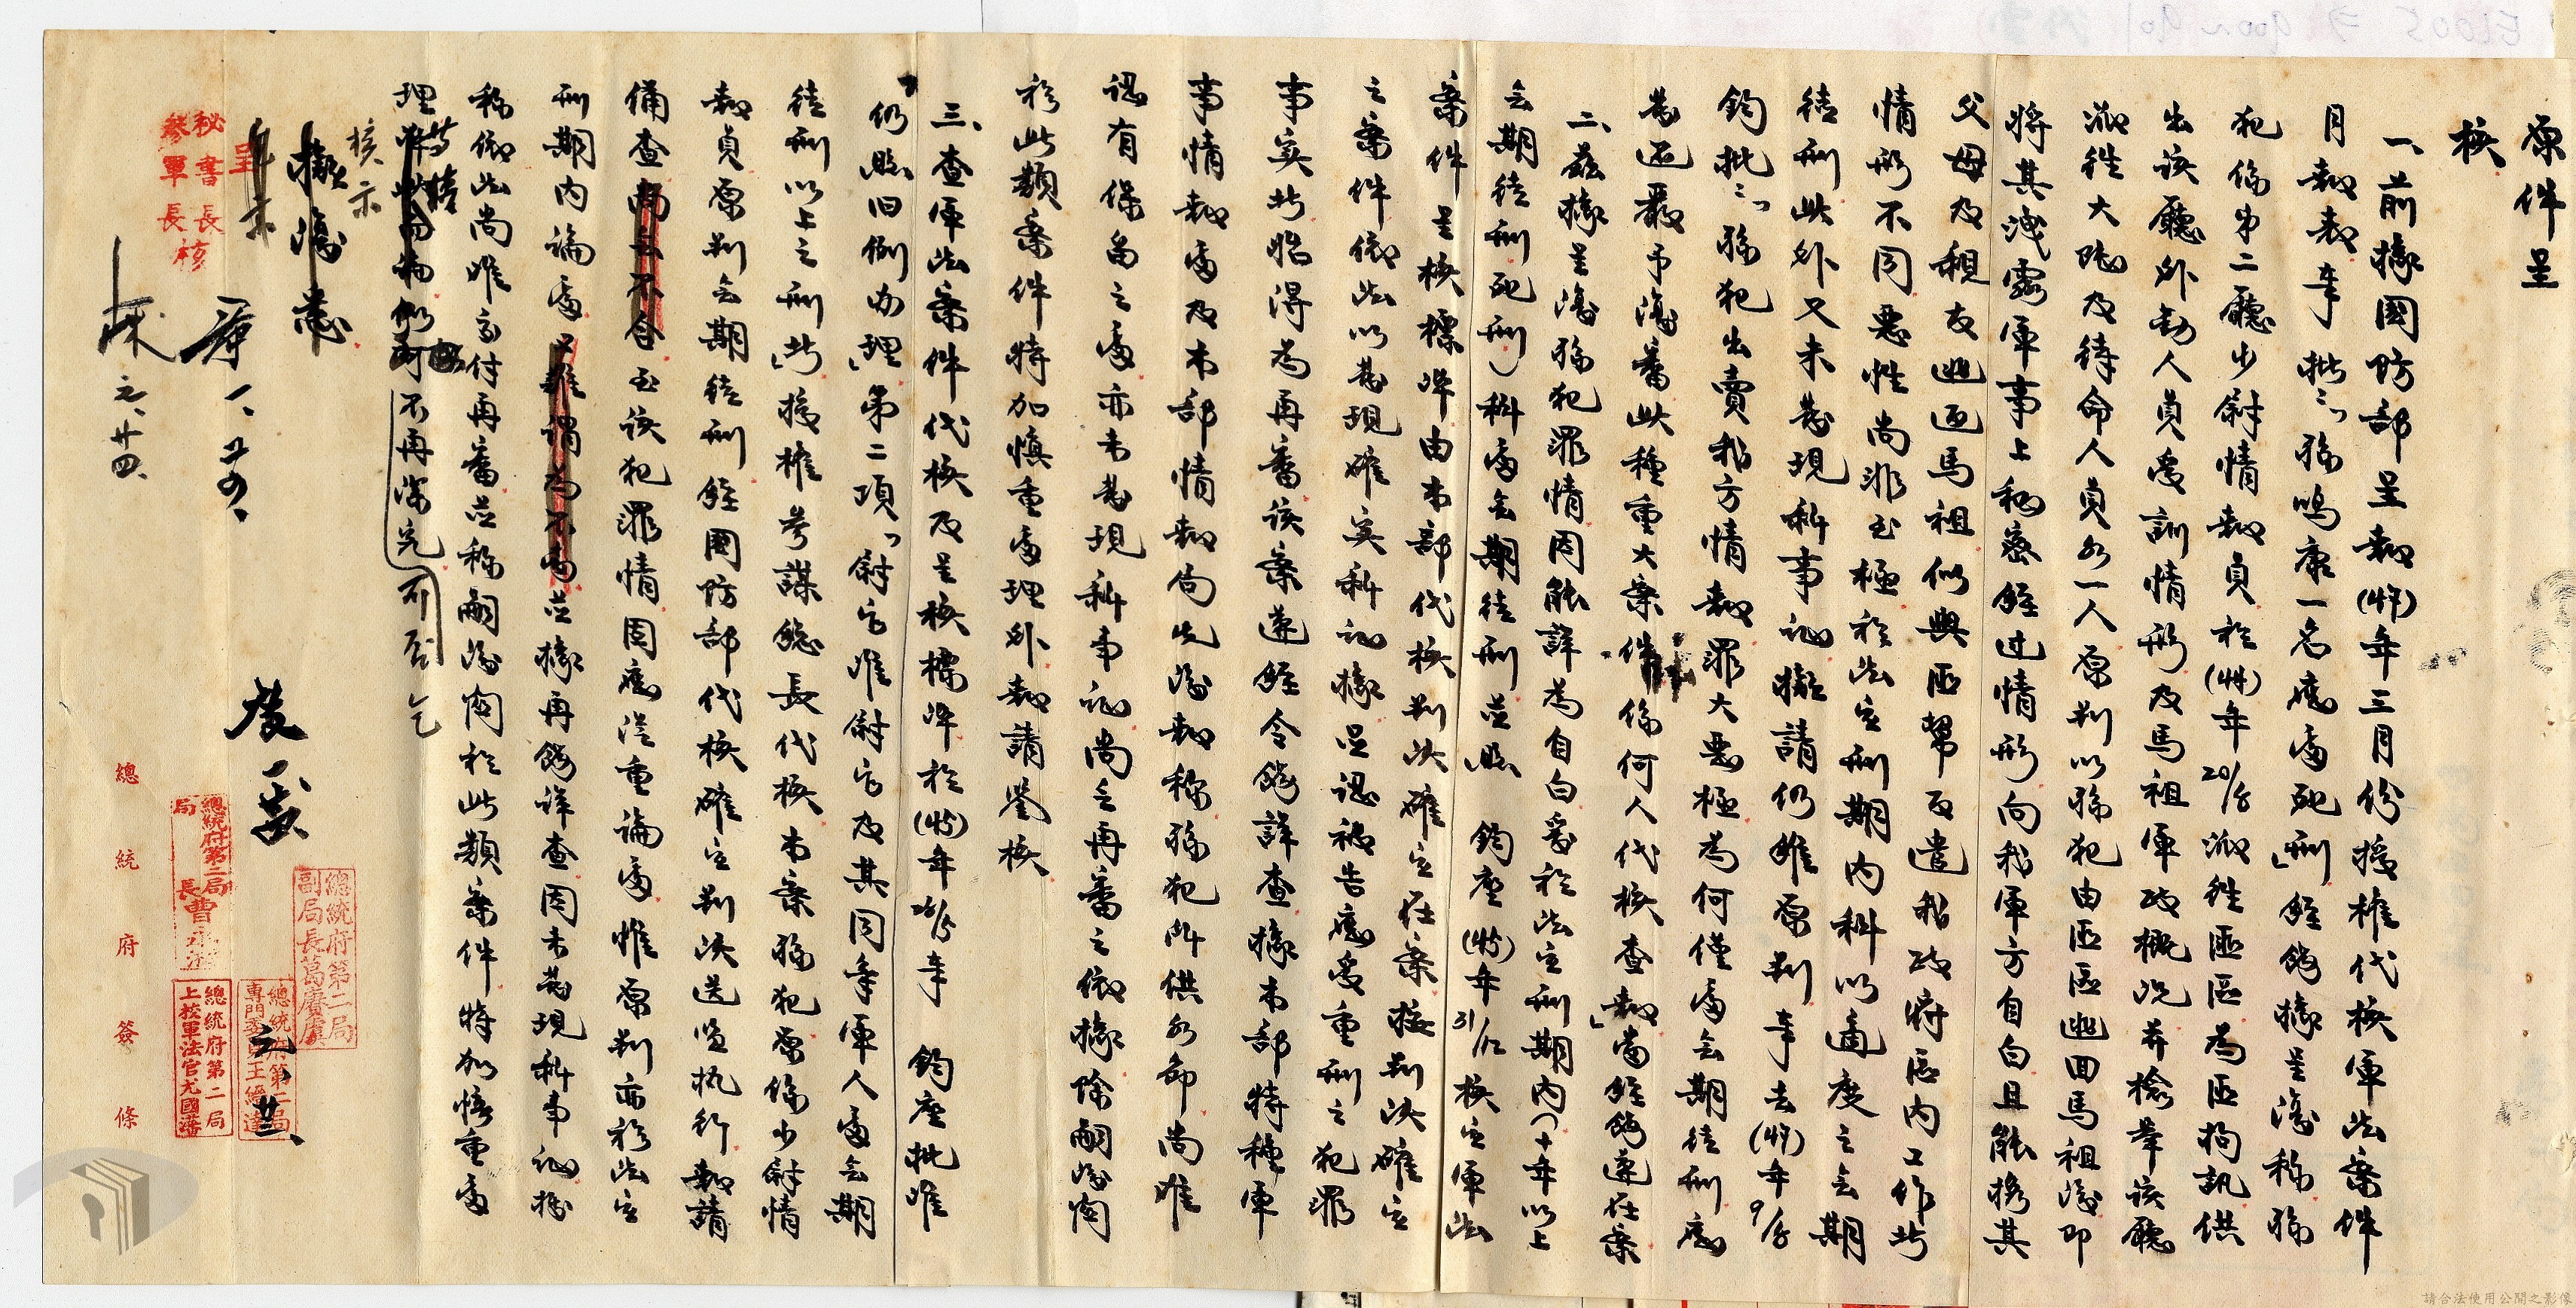 原件呈
核
一、前據國防部呈報(47)年三月份授權代核軍法案件
月報表奉 批「孫鳴康一名應處死刑」經飭據呈復稱孫
犯係第二廳少尉情報員於(44)年20/8派往匪區為匪拘訊供
出該廳外勤人員受訓情形及馬祖軍政概況并檢舉該廳
派往大陸及待命人員如一人原判以孫犯由匪區逃回馬祖後即
將其洩露軍事上秘密經过情形向我軍方自白且能携其
父母及親友逃返馬祖似與匪幫及遣我政府區內工作者
情形不同惡性尚非至極於法定刑期內科以適度之無期
徒刑此外又未發現新事証擬請仍維原判奉去(47)年9/8
鈞批「孫犯出賣我方情報罪大惡極為何僅處無期徒刑應
發還嚴予復審此種重大案件係何人代核查報」當經飭遵在案
二、茲據呈復孫犯罪情因能詳為自白爰於法定刑期內(十年以上
無期徒刑死刑)科處無期徒刑並照 鈞座(45)年31/12核定軍法
案件呈核標準由本部代核判決確定在案按判決確定
之案件依法以發現確實新証據足認被告應受重刑之犯罪
事實者始得為再審該案遵經令飭詳查據本部特種軍
事情報處及本部情報局先後報稱孫犯所供如命尚唯
認有保留之處亦未發現新事証尚無再審之依據除嗣後関
於此類案件特加慎重處理外報請鑒核
三、查軍法案件代核及呈核標準於(45)年26/5奉 鈞座批准
仍照旧例办理「第二項「尉官准尉官及其同等軍人處無期
徒刑以上之刑」者授權參謀總長代核本案孫犯原係少尉情
報員原判無期徒刑經國防部代核確定判決送監执行報請
備查尚無不合至該犯罪情固應從重論處惟原判亦於法定
刑期內論處又難謂為不當並據再飭詳查因未發現新事証按
稱依法尚唯交付再審並稱嗣後関於此類案件特加慎重處
理等情
不再深究可否乞
核示
擬復
呈
秘書長
參軍長核
職
元、廿四、
總統府第二局
局長曹永湘
總統府第二局
副局長葛廣虞
總統府第二局
專門委員王纘達
總統府第二局
上校軍法官尤國藩
元、廿三、
總統府簽條
請合法使用公開之影像